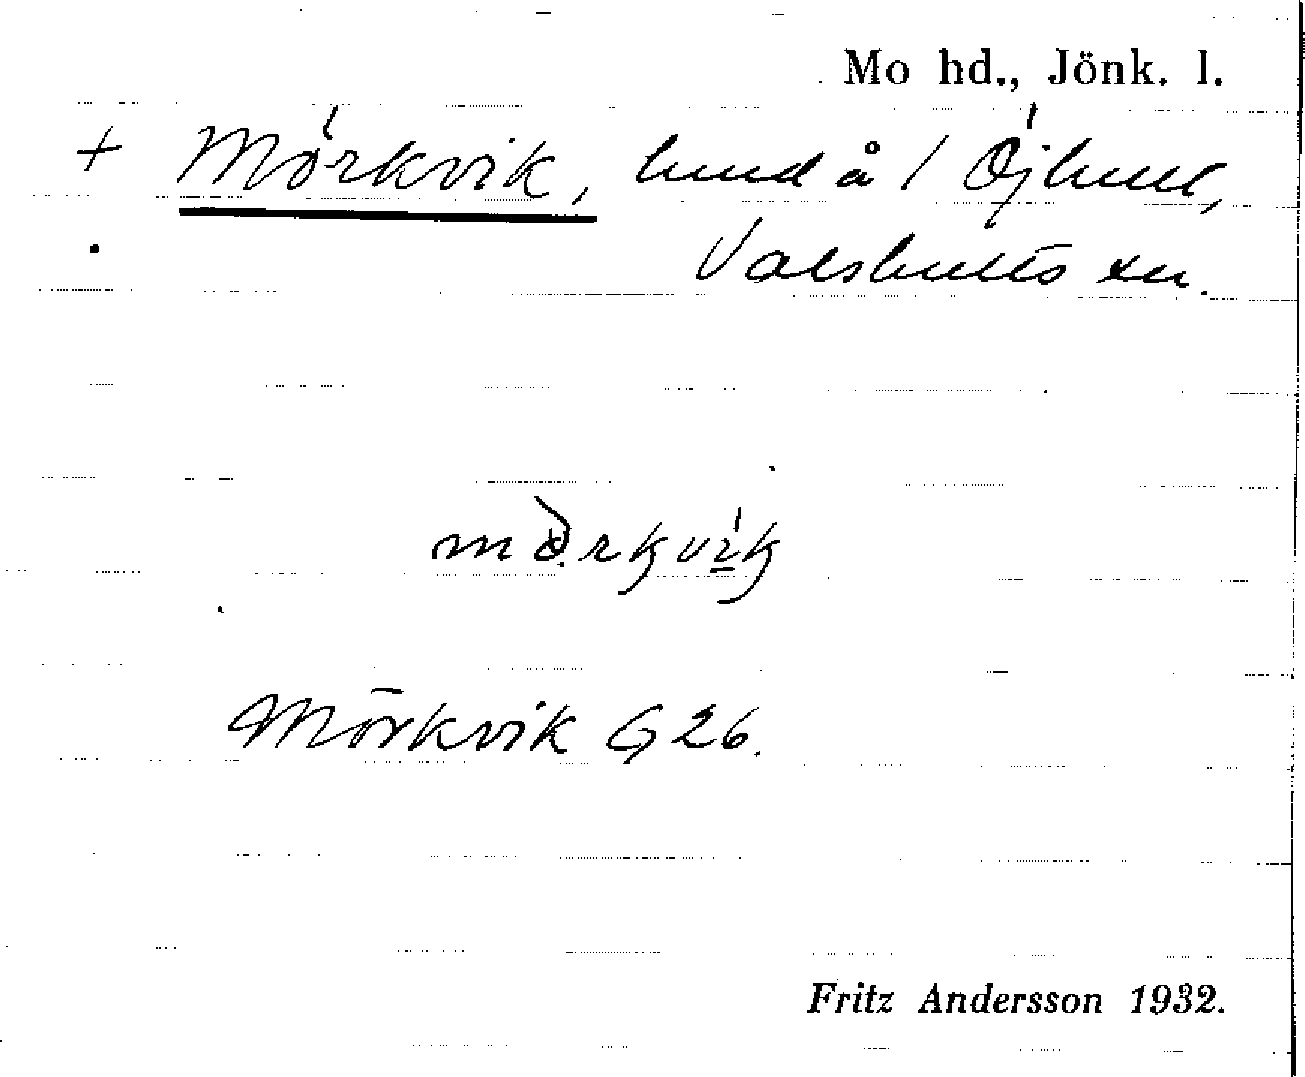 Mo hd., Jönk. l.
+ Mörkvik, lund å 1 Öjhult,
Valshults sn.
Mörkvik G 26.
Fritz Andersson 1932.